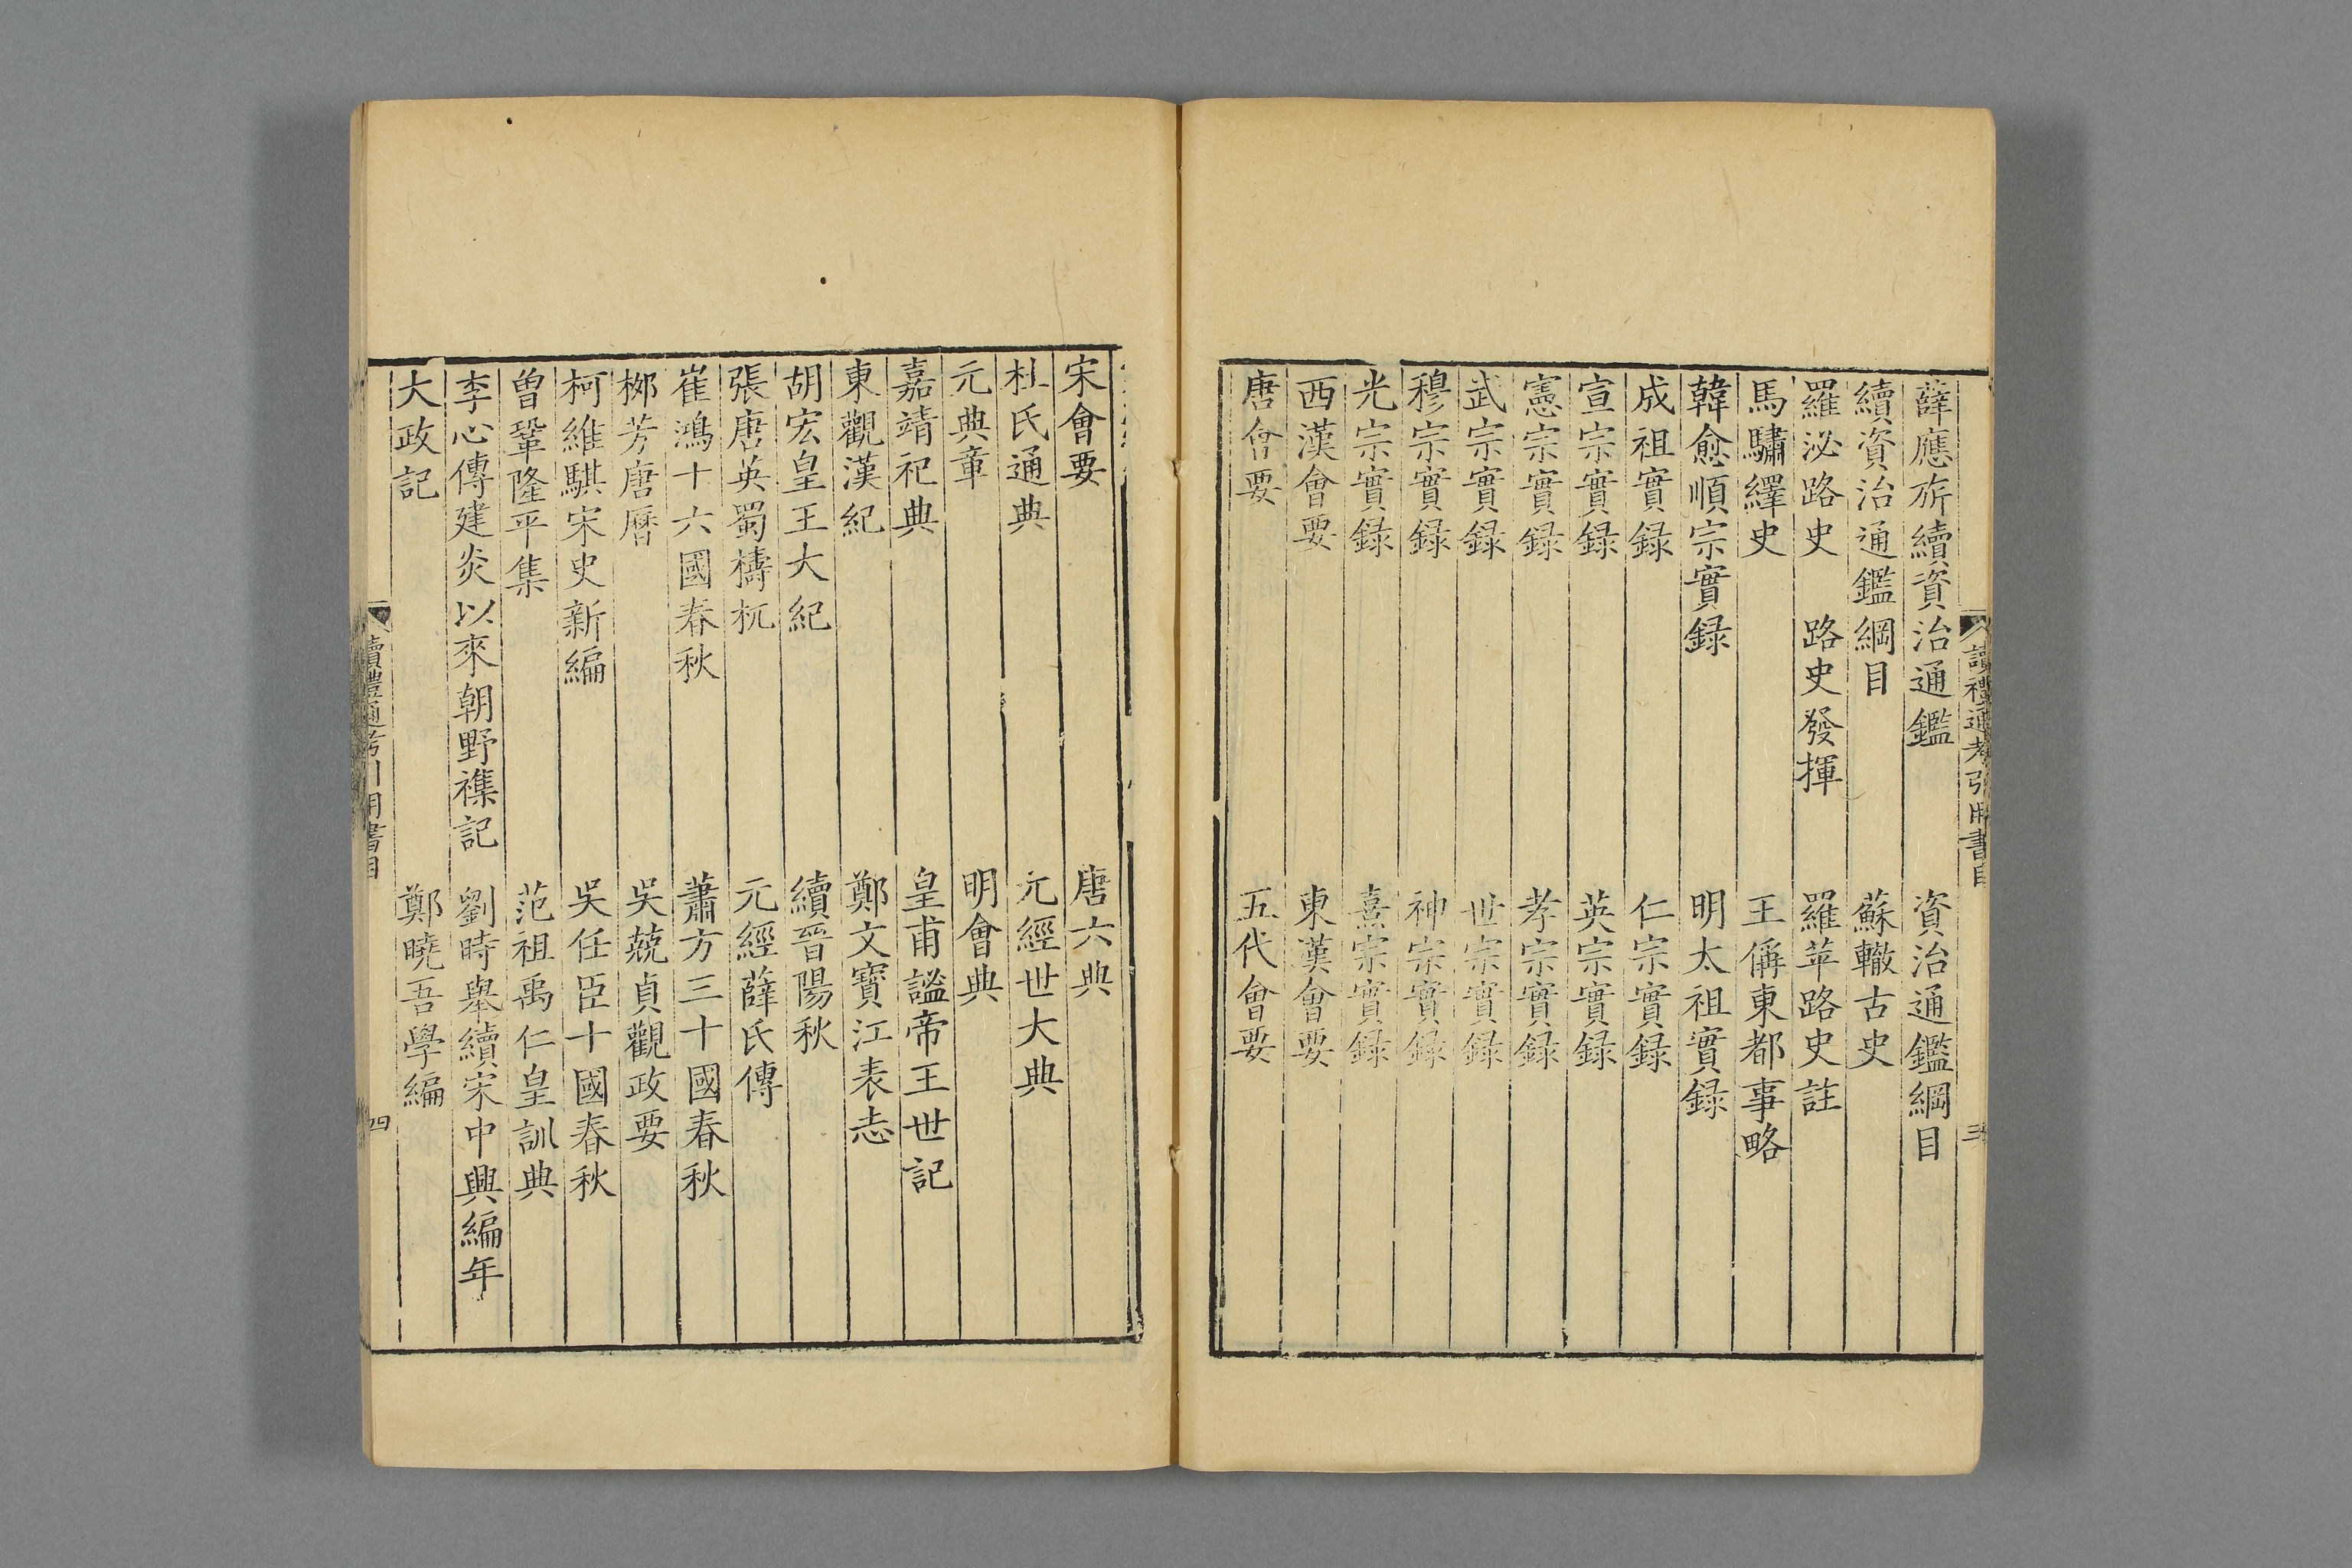 讀禮通考引用書目 三
薛應旂續資治通鑑 資治通鑑綱目
續資治通鑑綱目 蘇轍古史
羅泌路史 路史發揮 羅苹路史註
馬驌繹史 王偁東都事略
韓愈順宗實録 明太祖實録
成祖實録 仁宗實録
宣宗實録 英宗實録
憲宗實録 孝宗實録
武宗實録 世宗實録
穆宗實録 神宗實録
光宗實録 熹宗實録
西漢會要 東漢會要
唐會要 五代會要
宋會要 唐六典
杜氏通典 元經世大典
元典章 明會典
嘉靖祀典 皇甫謐帝王世記
東觀漢紀 鄭文寶江表志
胡宏皇王大紀 續晉陽秋
張唐英蜀檮杌 元經薛氏傳
崔鴻十六國春秋 蕭方三十國春秋
桞芳唐曆 吳兢貞觀政要
柯維騏宋史新編 吳任臣十國春秋
曾鞏隆平集 范祖禹仁皇訓典
李心傳建炎以來朝野襍記 劉時舉續宋中興編年
大政記 鄭曉吾學編
讀禮通考引用書目 四